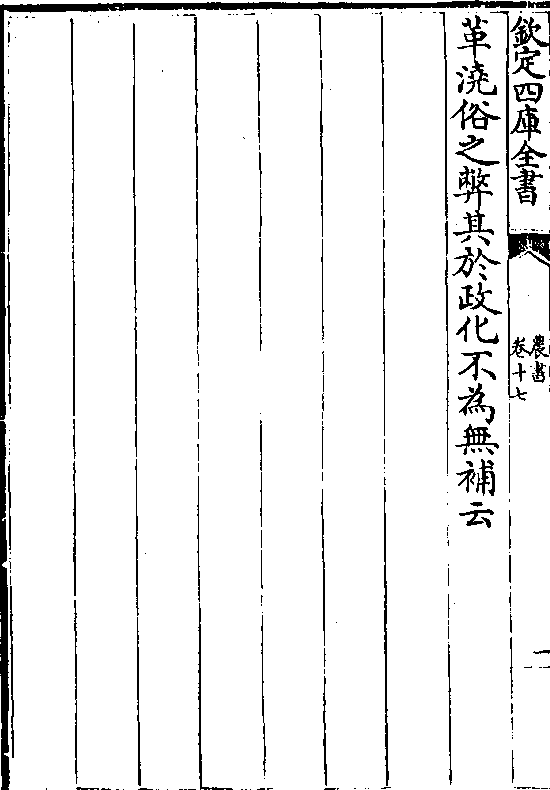 欽定四庫全書
農書
卷十七
一
革澆俗之弊其於政化不為無補云